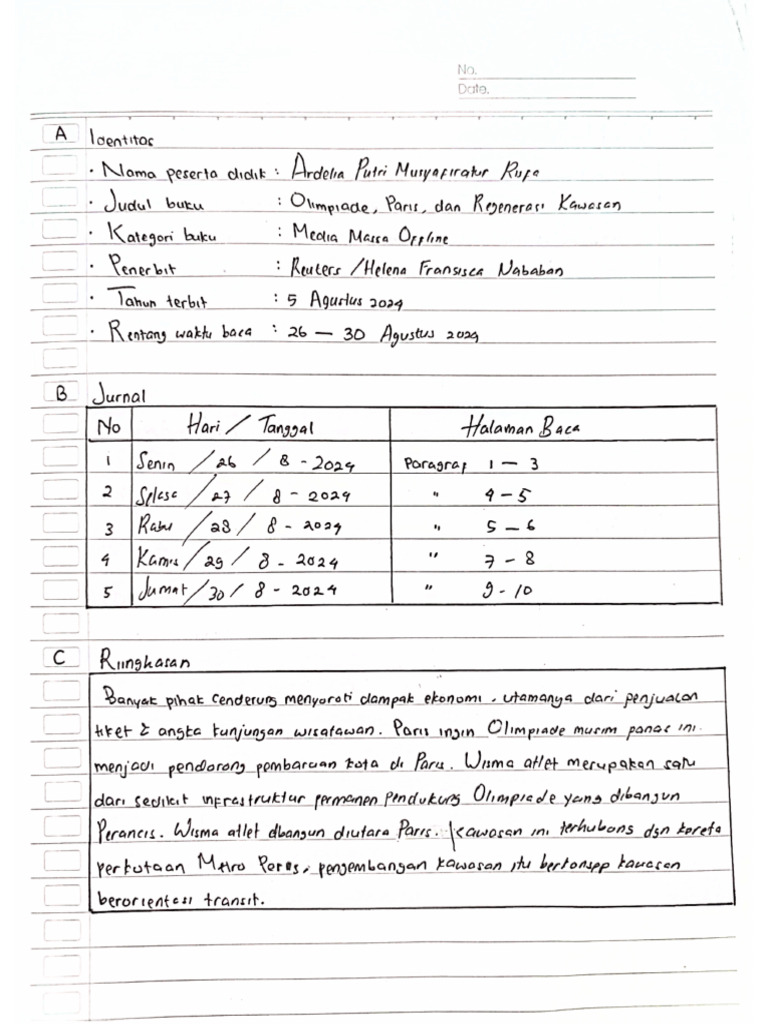 No.
Date.
A Identitas
• Nama peserta didik : Ardelia Putri Musyafiratur Rufa
• Judul buku : Olimpiade, Paris, dan Regenerasi Kawasan
• Kategori buku : Media Massa Offline
• Penerbit : Reuters / Helena Fransisca Nababan
• Tahun terbit : 5 Agustus 2024
• Rentang waktu baca : 26 — 30 Agustus 2024
B Jurnal
No Hari / Tanggal Halaman Baca
1 Senin / 26 / 8 - 2024 Paragraf 1 — 3
2 Selasa / 27 / 8 - 2024 " 4 - 5
3 Rabu / 28 / 8 - 2024 " 5 - 6
4 Kamis / 29 / 8 - 2024 " 7 - 8
5 Jumat / 30 / 8 - 2024 " 9 - 10
C Riingkasan
Banyak pihak cenderung menyoroti dampak ekonomi, utamanya dari penjualan
tiket & angka kunjungan wisatawan. Paris ingin Olimpiade musim panas ini
menjadi pendorong pembaruan kota di Paris. Wisma atlet merupakan satu
dari sedikit infrastruktur permanen pendukung Olimpiade yang dibangun
Perancis. Wisma atlet dbangun diutara Paris. Kawasan ini terhubong dgn kereta
perkotaan Metro Peres, pengembangan kawasan itu berkonsep kawasan
berorientasi transit.